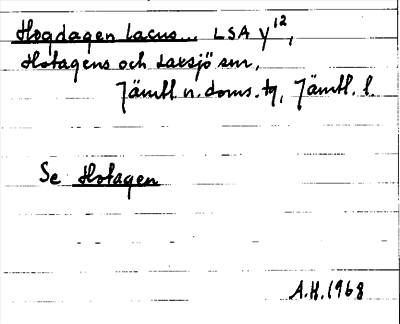 Hogdagen Lacus... LSA y¹²,
Hotagens och Laxsjö sm,
Jämtl. n. doms. tg, Jämtl. l.
Se Hotagen
A.H. 1968